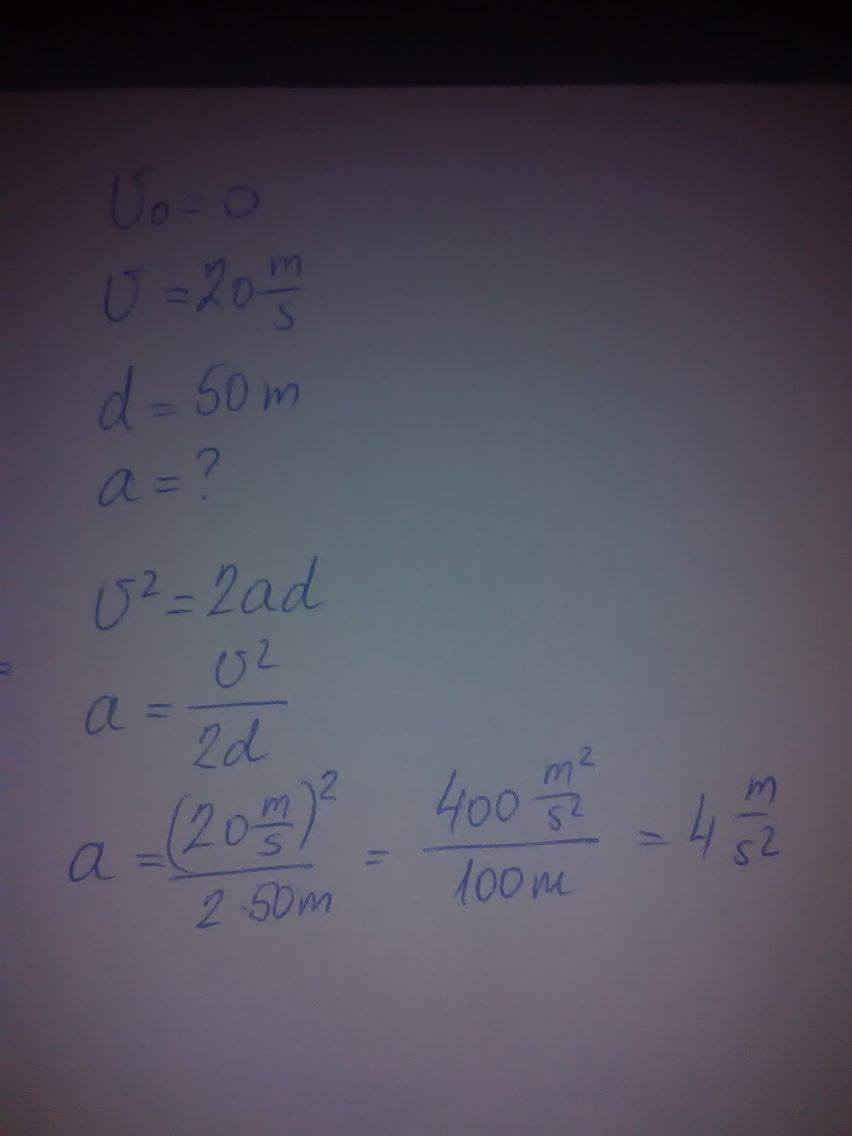 υ₀ = 0
υ = 20 m/s
d = 50 m
a = ?
υ² = 2ad
a = υ²/2d
a = (20 m/s)²/2·50m = 400 m²/s²/100m = 4 m/s²